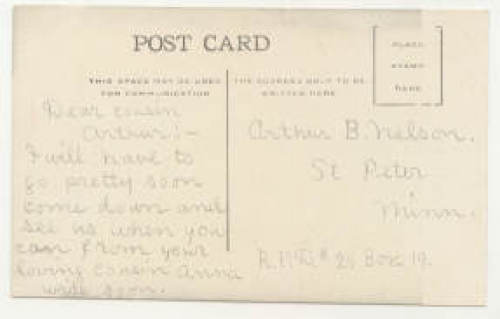 POST CARD
THIS SPACE MAY BE USED
FOR COMMUNICATION
THE ADDRESS ONLY TO BE
WRITTEN HERE
PLACE
STAMP
HERE
Dear cousin
Arthur:-
I will have to
go pretty soon
come down and
see us when you
can from your
loving cousin Anna
write soon.
Arthur B. Nelson.
St Peter
Minn.
Box 19.